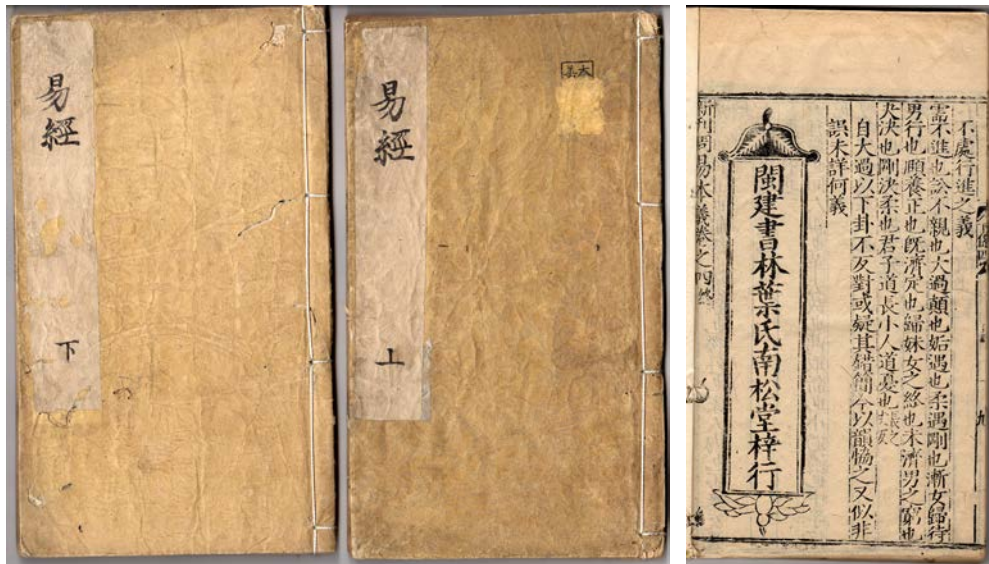 易經
下
易經
上
不處行進之義
需不進也訟不親也大過顛也姤遇也柔遇剛也漸女歸待
男行也頤養正也既濟定也歸妹女之終也未濟男之窮也
夬決也剛決柔也君子道長小人道憂也
自大過以下卦不反對或疑其錯簡今以韻協之又似非
誤未詳何義
閩建書林葉氏南松堂梓行
新刊周易本義卷之四終